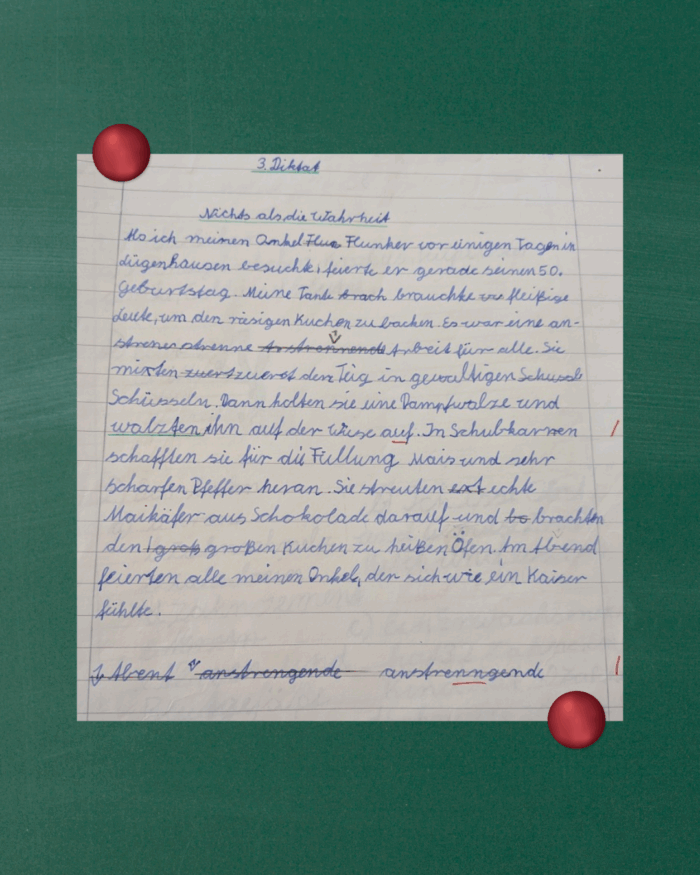 3. Diktat
Nichts als die Wahrheit
Als ich meinen Onkel Flun Flunker vor einigen Tagen in
Lügenhausen besuchte, feierte er gerade seinen 50.
Geburtstag. Meine Tante brach brauchte fleißige
Leute, um den riesigen Kuchen zu backen. Es war eine an-
Arbeit für alle. Sie
mixten zuerst den Teig in gewaltigen Schussel
Schüsseln. Dann holten sie eine Dampfwalze und
walzten ihn auf der Wiese auf. In Schubkarren
schafften sie für die Füllung Mais und sehr
scharfen Pfeffer heran. Sie streuten ext echte
Maikäfer aus Schokolade darauf und bo brachten
den groß großen Kuchen zu heißen Öfen. Am Abend
feierten alle meinen Onkel, der sich wie ein Kaiser
fühlte.
Abent 1) anstrengende anstrenngende